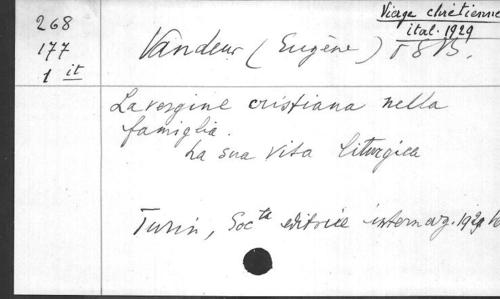 268
177
1 it
Vierge chrétienne
ital. 1929
Vandeur (Eugène) OSB.
La vergine cristiana nella
famiglia.
La sua vita liturgica
Turin, Socta editrice internaz. 1929